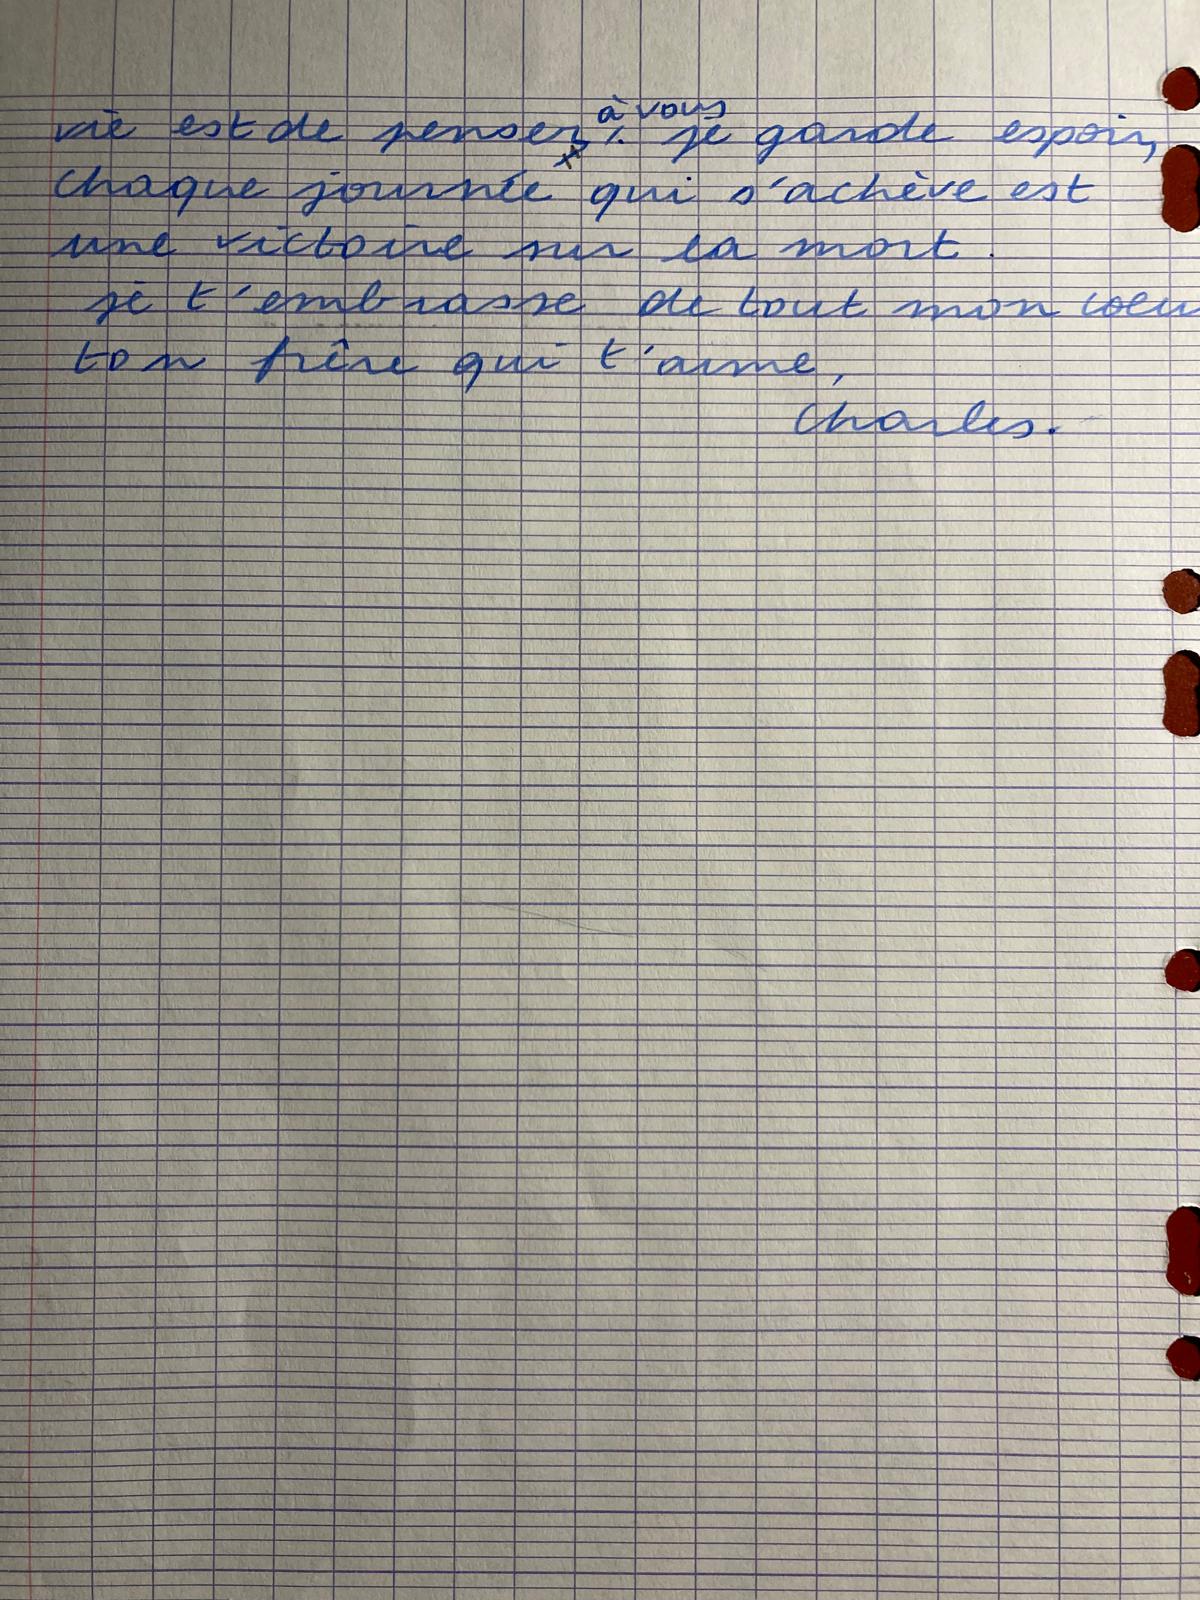 vie est de penser à vous. je garde espoir,
chaque journée qui s'achève est
une victoire sur la mort.
je t'embrasse de tout mon coeu
ton frère qui t'aime,
Charles.